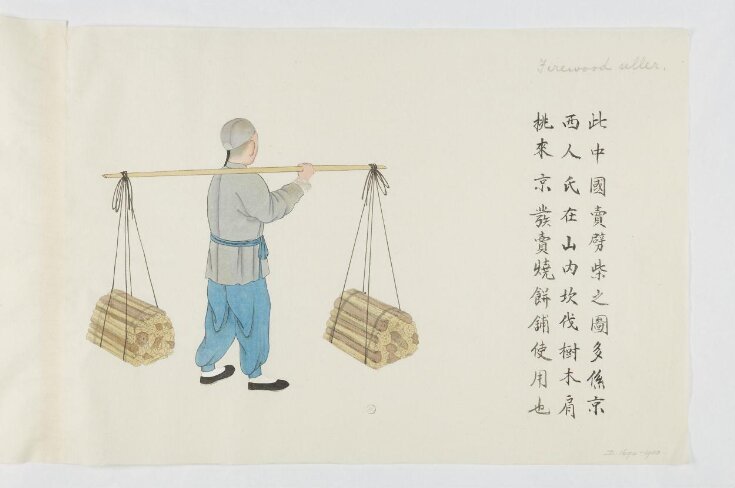 Firewood seller.
此中國賣劈柴之圖多係京
西人氏在山內坎伐樹木肩
桃來京發賣燒餅舖使用也